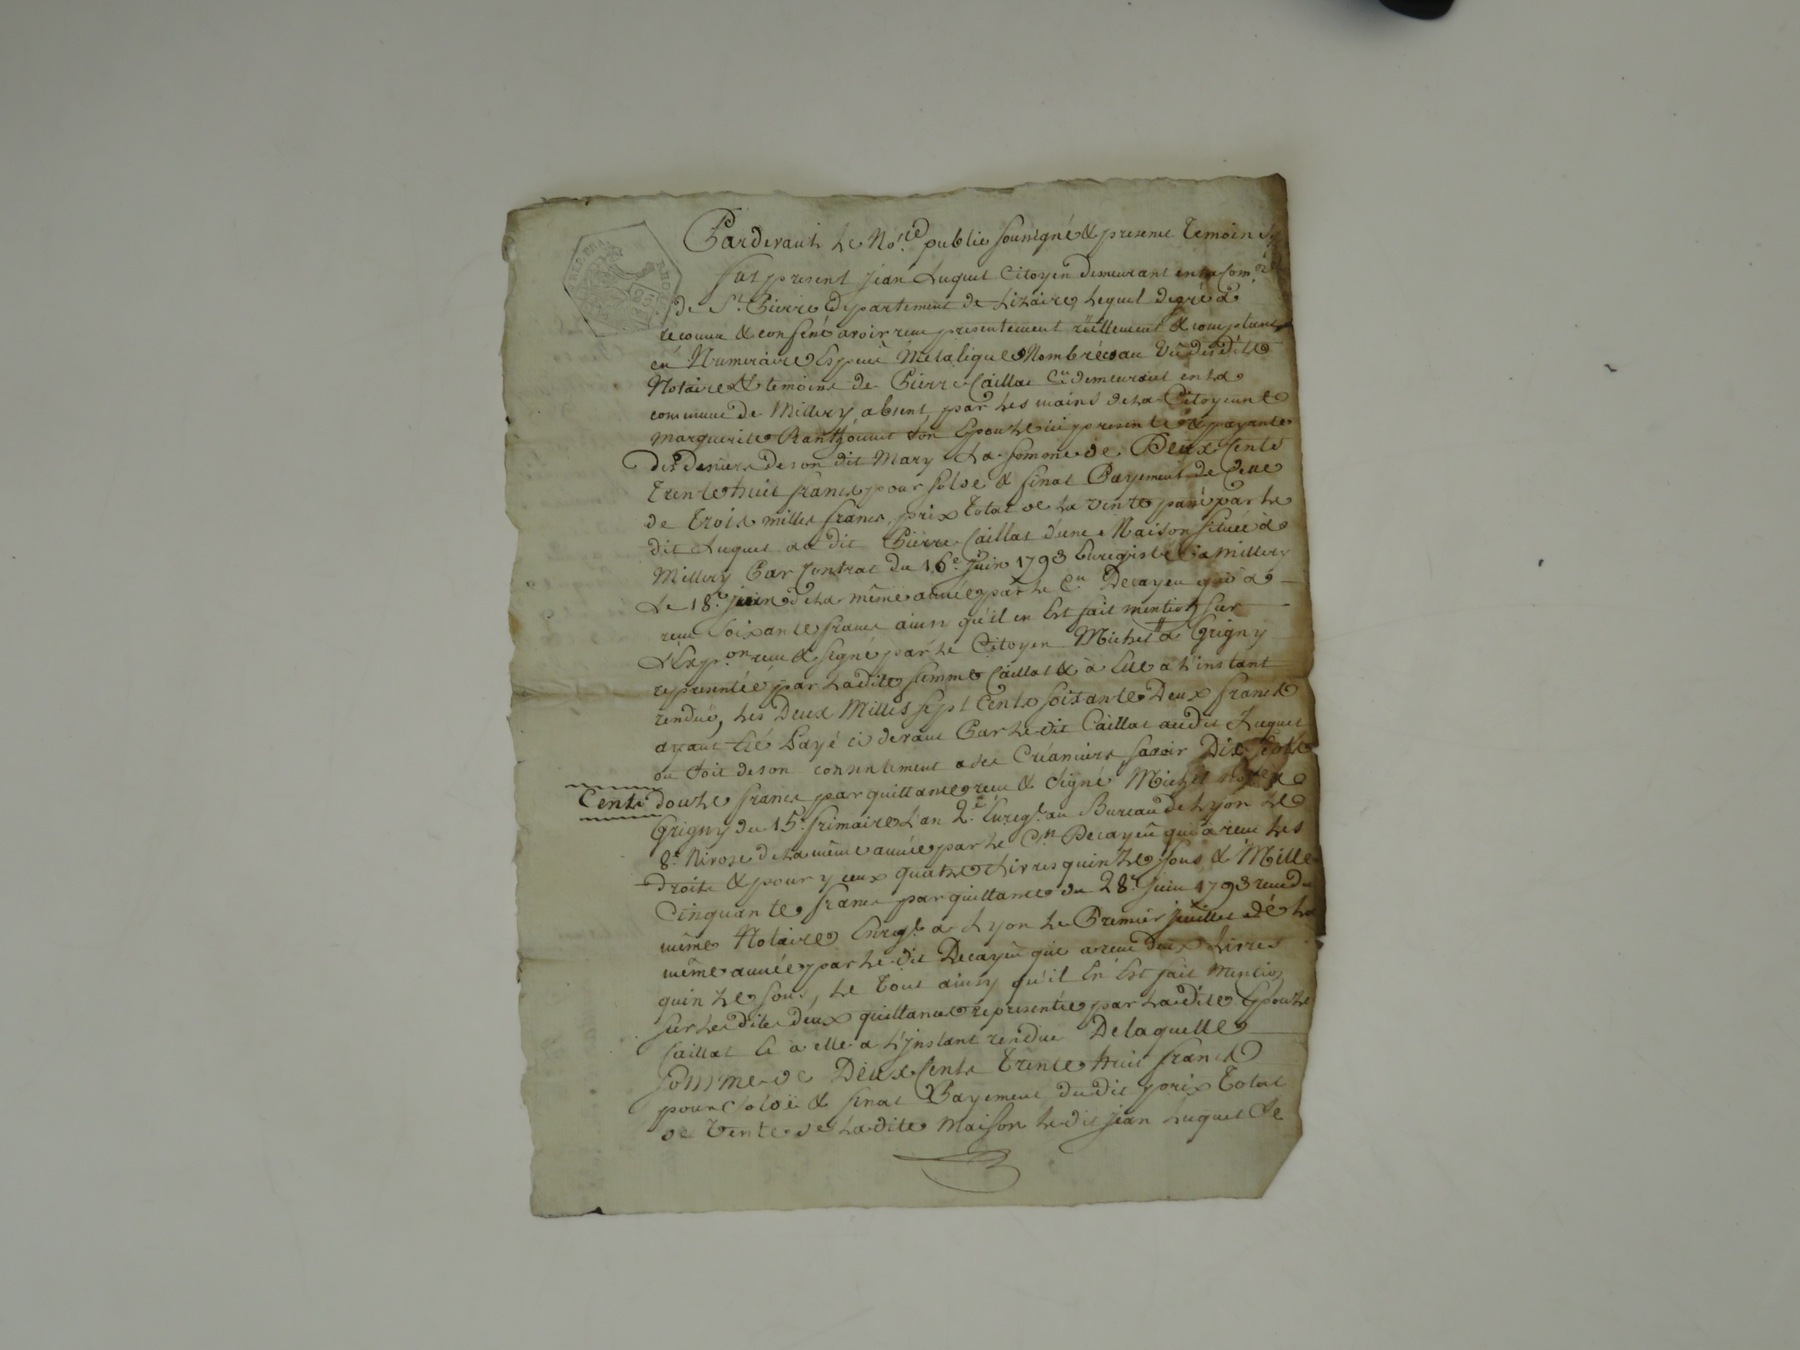 Pardevant Le No.re public soussigné & presents temoins
fut present Jean Luquet Citoyen demeurant en la Com.
de St. Pierre Departement de Lizaire, Lequel de gré à
reconnu & confessé avoir recu presentement réellement & comptant
en Numeraire Espece Metalique Nombrée au Vû des dits
Notaire & temoins de Pierre Caillat Cen demeurant en La
commune de Millery absent, par Les mains de La Citoyenne
Marguerite son Epouze ici presente & payante
des deniers de son dit Mary La somme de Deux Cents
Trente huit francs pour solde & final Payement de Celle
de trois milles francs, prix total de La vente passé par Le
dit Luquet au dit Pierre Caillat d'une Maison située à
Millery Par Contrat du 16e. Juin 1793 Enregistré à Millery
Le 18e. Juin de La même année par Le Cn. Decayeu qui à
recu soixante francs ainsy qu'il en Est fait mention sur
L'Exp.on recu & signé par Le Citoyen Michel Nre à Grigny
representée par La dite femme Caillat & à Elle a L'instant
rendue, Les Deux Milles sept Cents soixante Deux francs
ayant Eté Payé ci devant Par Le dit Caillat audit Luquet
ou soit de son consentement a des Créanciers, savoir Dix sept
Cents douze francs par quittance recu & signé Michel Nore à
Grigny du 15e. frimaire L'an 2e. Enregt. au Bureau de Lyon Le
8e. Nivose de La même année par Le Cn. Decayeu qui à recu Les
droits & pour yceux quatre Livres quinze sous & Mille
Cinquante francs par quittance du 28e. Juin 1793 recu du
même Notaire, Enregt. a Lyon Le Premier Juillet de La
même année par Le dit Decayeu qui a recu deux Livres
quinze sous, Le tout ainsy qu'il En Est fait Mention
sur Les dites deux quittances representée par La dite Epouze
Caillat Et à elle a L'Instant rendue De laquelle
somme de Deux Cents Trente huit francs
pour solde & final Payement du dit prix total
de Vente de La dite Maison Le dit Jean Luquet se